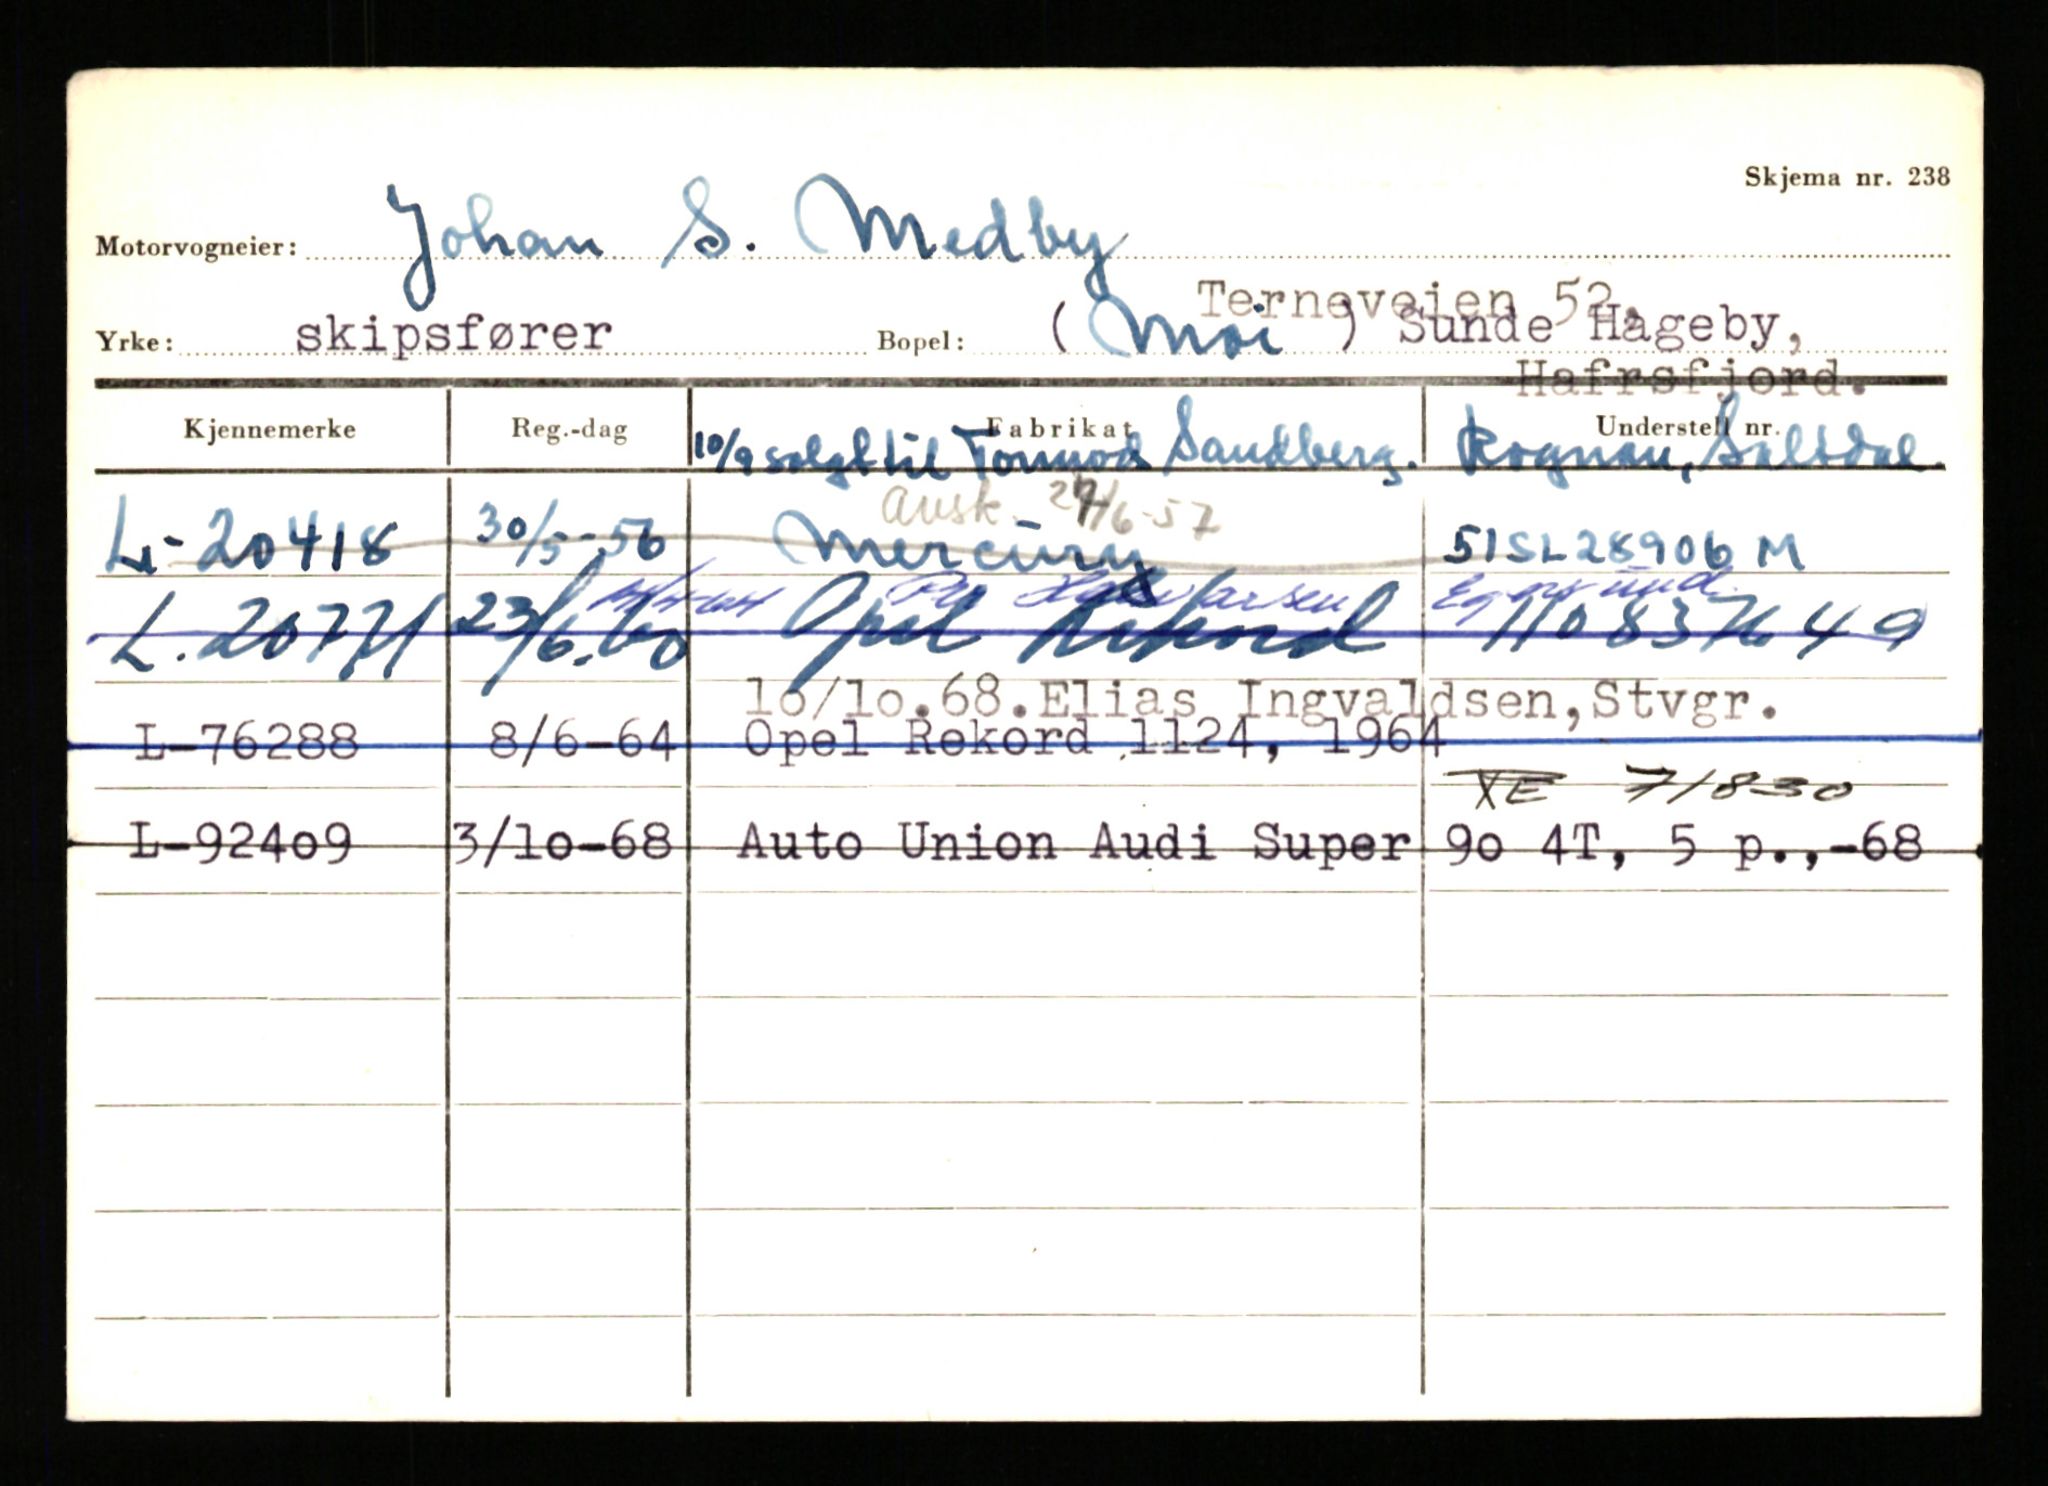 Skjema nr. 238
Motorvogneier: Johan S. Medby
Terneveien 52,
Yrke: skipsfører Bopel: (Moi) Sunde Hageby,
Hafrsfjord.
Kjennemerke Reg.-dag Fabrikat Understell nr.
10/9 solgt til Tormod Sandberg. Rognan, Saltdal.
avsk. 27/6-57
L-20418 30/5-56 Mercury 51SL28906 M
Halvorsen Egersund.
L.20771 23/6.60 Opel Rekord 110837649
10/10.68. Elias Ingvaldsen, Stvgr.
L-76288 8/6-64 Opel Rekord 1124, 1964
XE 71830
L-92409 3/10-68 Auto Union Audi Super 90 4T, 5 p.,-68